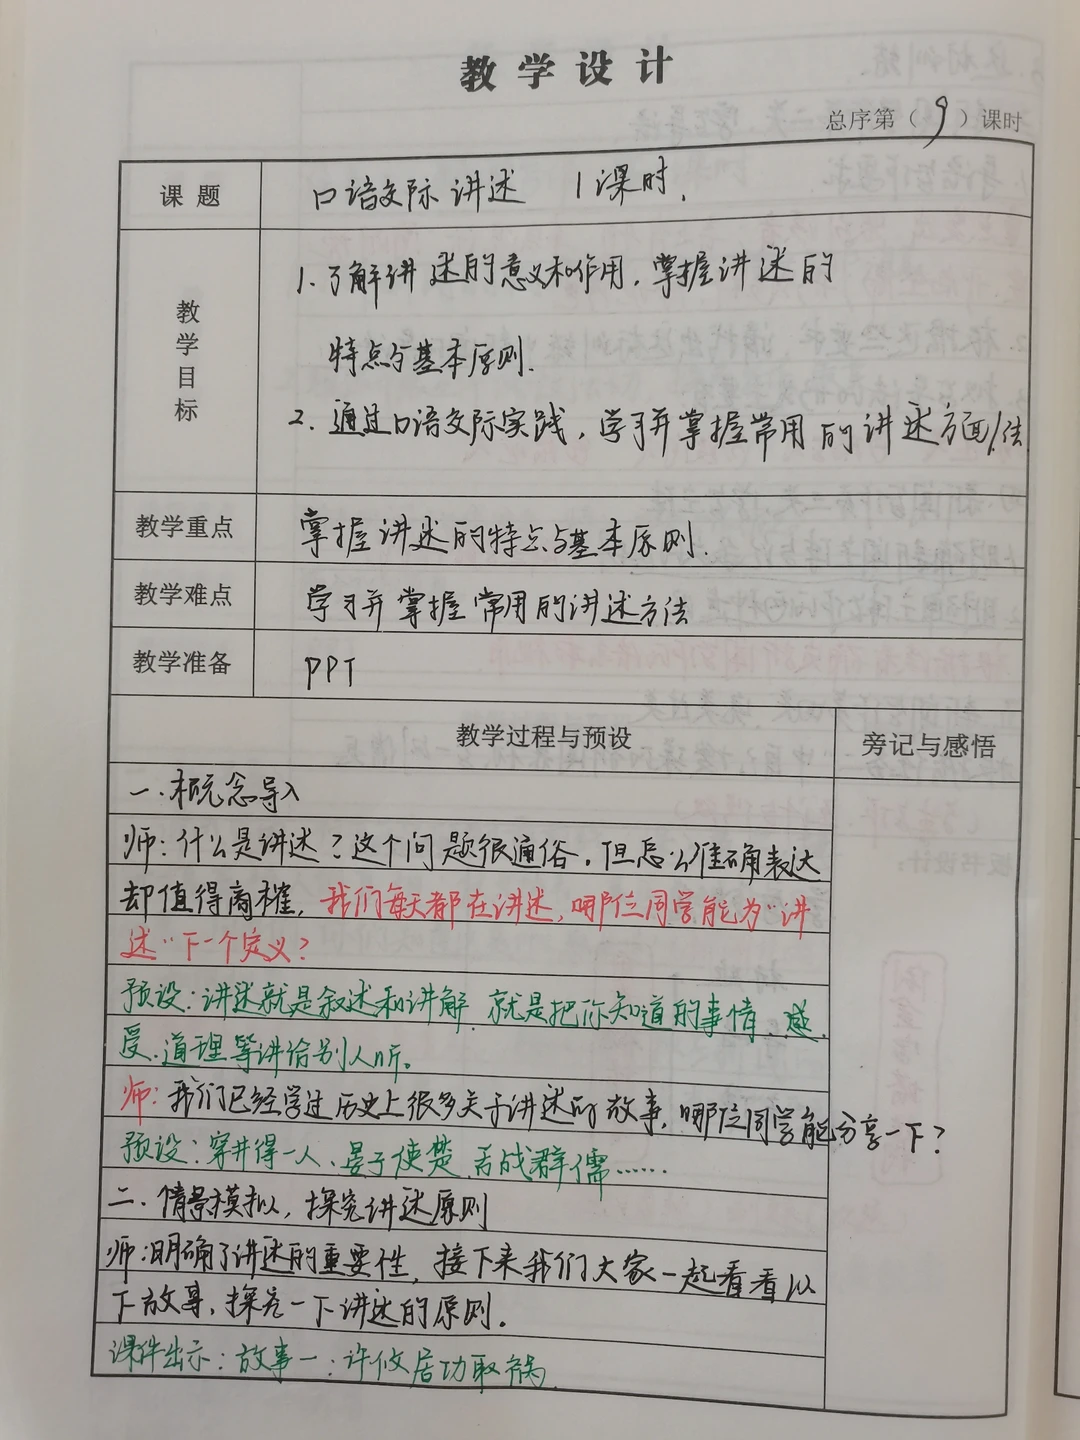 教学设计
总序第（9）课时
课题 口语交际 讲述 1课时.
教学目标
1.了解讲述的意义和作用，掌握讲述的
特点与基本原则.
2.通过口语交际实践，学习并掌握常用的讲述方面/法
教学重点 掌握讲述的特点与基本原则.
教学难点 学习并掌握常用的讲述方法
教学准备 PPT
教学过程与预设 旁记与感悟
一.概念导入
师:什么是讲述?这个问题很通俗.但怎么准确表达
却值得商榷，我们每天都在讲述，哪位同学能为"讲
述"下一个定义?
预设:讲述就是叙述和讲解.就是把你知道的事情、感
受、道理等讲给别人听。
师:我们已经学过历史上很多关于讲述的故事，哪位同学能分享一下?
预设:穿井得一人、晏子使楚、舌战群儒……
二.情景模拟，探究讲述原则
师:明确了讲述的重要性，接下来我们大家一起看看以
下故事，探究一下讲述的原则.
课件出示:故事一:许攸居功取祸